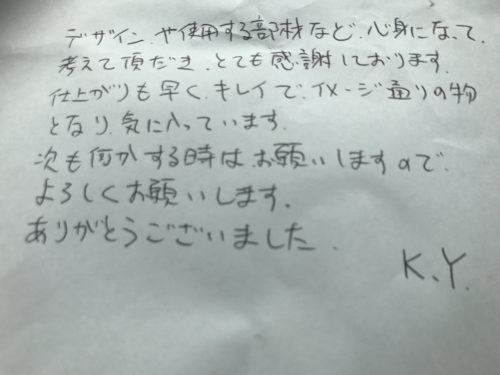 デザインや使用する部材など、心身になって、
考えて頂だき、とても感謝しております。
仕上がりも早く、キレイで、イメージ通りの物
となり、気に入っています。
次も何かする時はお願いしますので、
よろしくお願いします。
ありがとうございました。
K.Y.